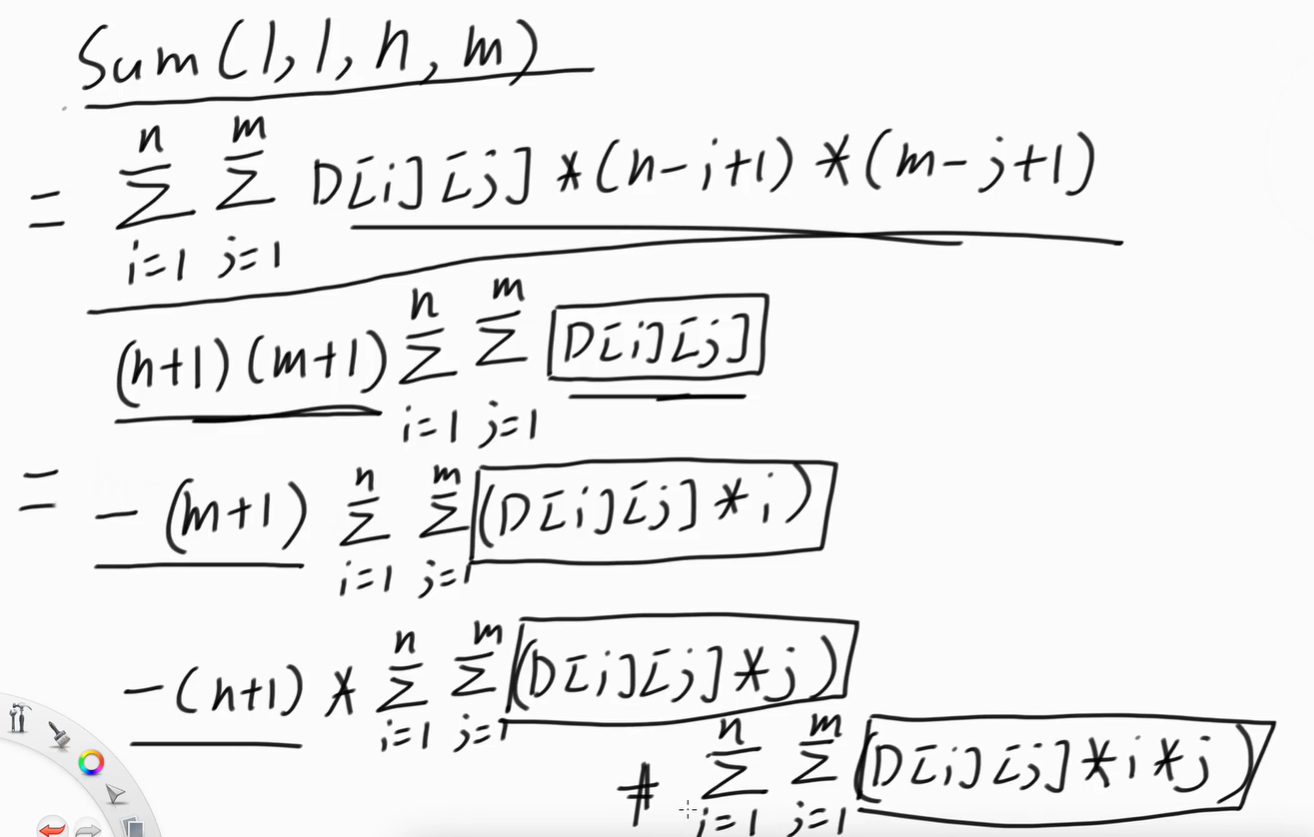 Sum(1,1,n,m)
= \sum_{i=1}^{n} \sum_{j=1}^{m} D[i][j]*(n-i+1)*(m-j+1)
= (n+1)(m+1) \sum_{i=1}^{n} \sum_{j=1}^{m} D[i][j]
-(m+1) \sum_{i=1}^{n} \sum_{j=1}^{m} (D[i][j]*i)
-(n+1)* \sum_{i=1}^{n} \sum_{j=1}^{m} (D[i][j]*j)
+ \sum_{i=1}^{n} \sum_{j=1}^{m} (D[i][j]*i*j)